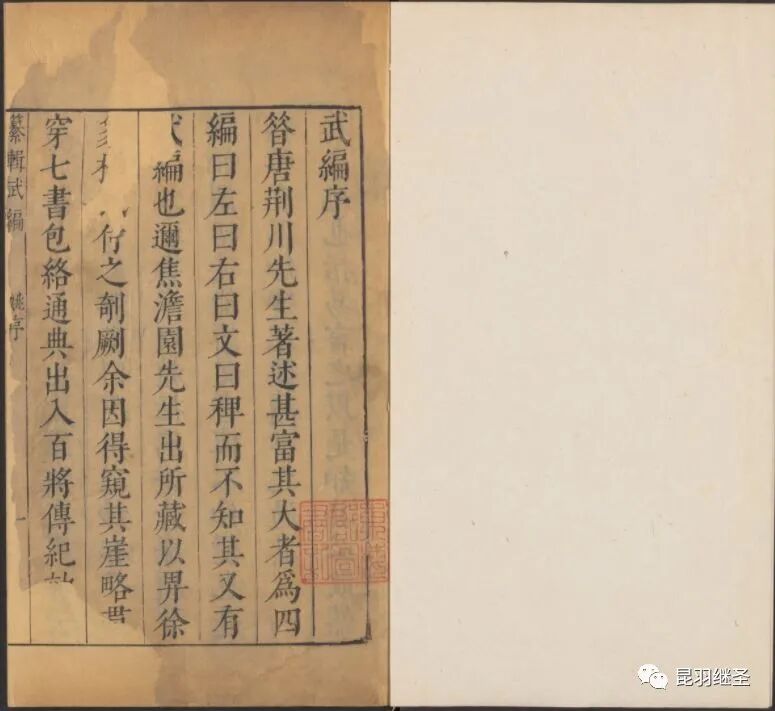 武編序
昝唐荆川先生著述甚富其大者爲四
編曰左曰右曰文曰稗而不知其又有
編也邇焦澹園先生出所藏以畀徐
付之剞劂余因得窺其崖略貫
穿七書包絡通典出入百將傳紀
纂輯武編
姚序
一
昆羽继圣